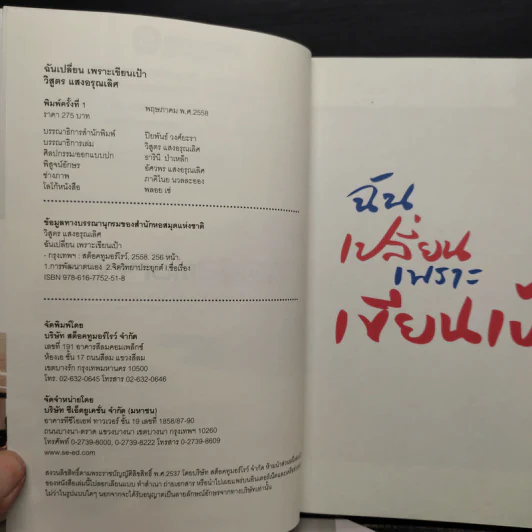 ฉันเปลี่ยน เพราะเขียนเป้า
วิสูตร แสงอรุณเลิศ
พิมพ์ครั้งที่ 1 พฤษภาคม พ.ศ.2558
ราคา 275 บาท
บรรณาธิการสำนักพิมพ์ ปิยพันธ์ วงศ์ยะรา
บรรณาธิการเล่ม วิสูตร แสงอรุณเลิศ
ศิลปกรรม/ออกแบบปก ธารินี ป่าเหล็ก
พิสูจน์อักษร อัศวพร แสงอรุณเลิศ
ช่างภาพ ภาคิไนย นวลละออง
โลโก้หนังสือ พลอย เซ่
ข้อมูลทางบรรณานุกรมของสำนักหอสมุดแห่งชาติ
วิสูตร แสงอรุณเลิศ
ฉันเปลี่ยน เพราะเขียนเป้า
- กรุงเทพฯ : สต็อคทูมอร์โรว์, 2558. 256 หน้า.
1.การพัฒนาตนเอง 2.จิตวิทยาประยุกต์ I.ชื่อเรื่อง
ISBN 978-616-7752-51-8
จัดพิมพ์โดย
บริษัท สต็อคทูมอร์โรว์ จำกัด
เลขที่ 191 อาคารสีลมคอมเพล็กซ์
ห้องเอ ชั้น 17 ถนนสีลม แขวงสีลม
เขตบางรัก กรุงเทพมหานคร 10500
โทร. 02-632-0645 โทรสาร 02-632-0646
จัดจำหน่ายโดย
บริษัท ซีเอ็ดยูเคชั่น จำกัด (มหาชน)
อาคารทีซีไอเอฟ ทาวเวอร์ ชั้น 19 เลขที่ 1858/87-90
ถนนบางนา-ตราด แขวงบางนา เขตบางนา กรุงเทพฯ 10260
โทรศัพท์ 0-2739-8000, 0-2739-8222 โทรสาร 0-2739-8609
www.se-ed.com
สงวนลิขสิทธิ์ตามพระราชบัญญัติลิขสิทธิ์ พ.ศ.2537 โดยบริษัท สต็อคทูมอร์โรว์ จำกัด ห้ามนำส่วนหนึ่ง
ของหนังสือเล่มนี้ไปลอกเลียนแบบ ทำสำเนา ถ่ายเอกสาร หรือนำไปเผยแพร่บนอินเตอร์เน็ต
ไม่ว่าในรูปแบบใดๆ นอกจากจะได้รับอนุญาตเป็นลายลักษณ์อักษรจากทางบริษัทเท่านั้น
ฉัน
เปลี่ยน
เพราะ
เขียนเป้